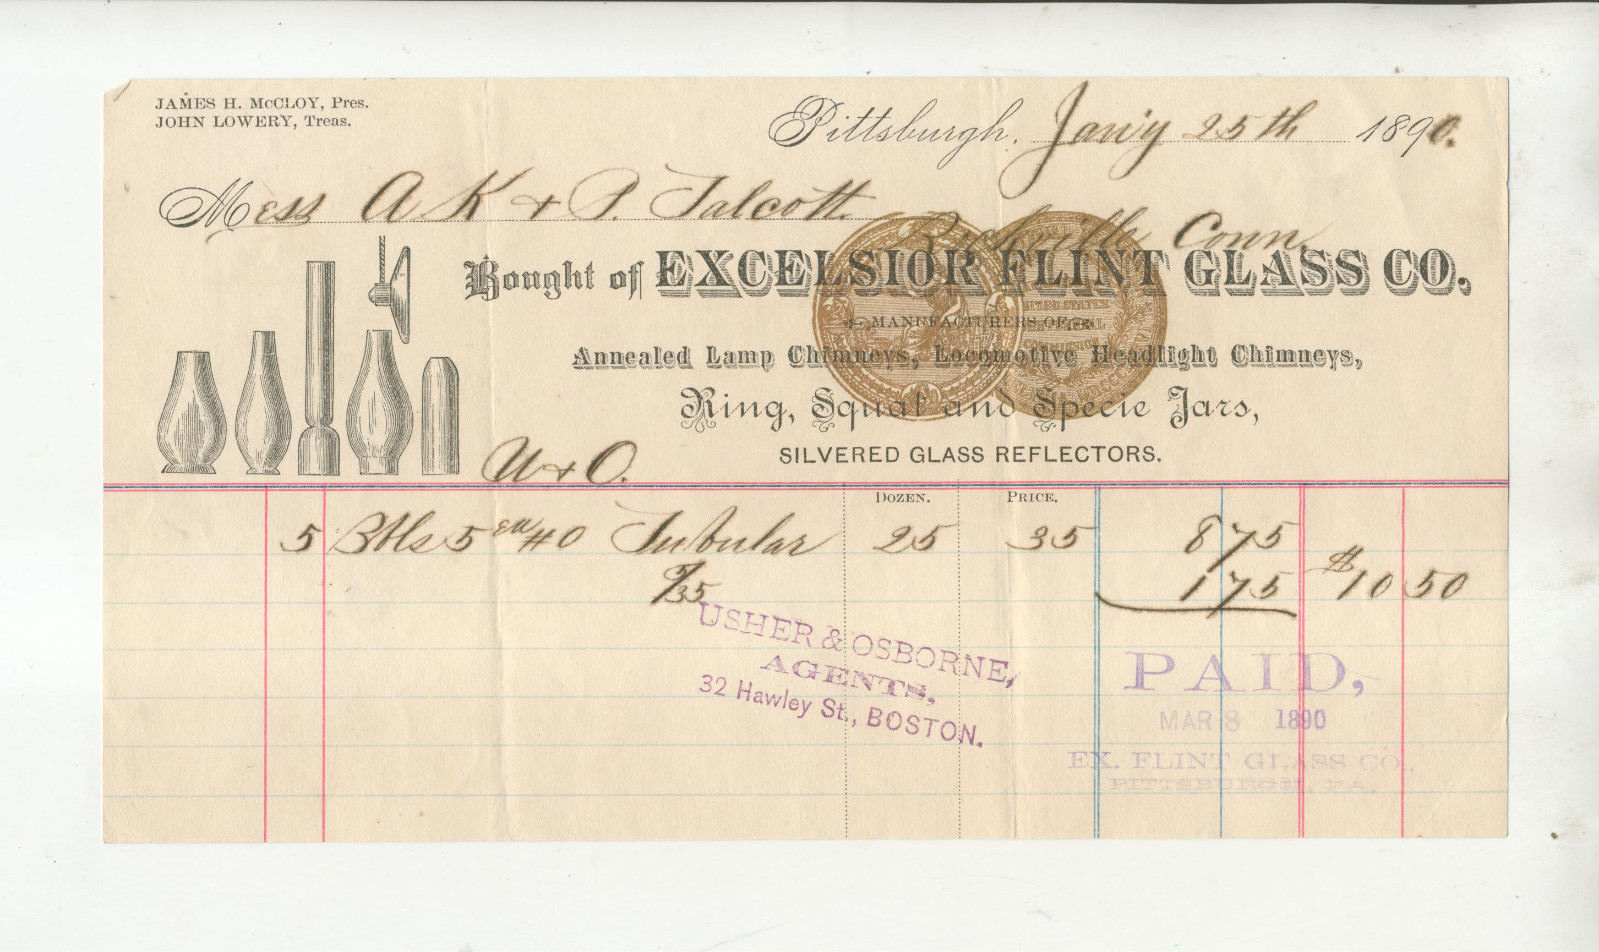 JAMES H. McCLOY, Pres.
JOHN LOWERY, Treas.
Pittsburgh, Jan'y 25th 1890.
Mess A K & P. Talcott
Rockville Conn.
Bought of EXCELSIOR FLINT GLASS CO.,
MANUFACTURERS OF
Annealed Lamp Chimneys, Locomotive Headlight Chimneys,
Ring, Squat and Specie Jars,
SILVERED GLASS REFLECTORS.
U & O.
DOZEN. PRICE.
5 Bbls 5 ea #0 Tubular 25 35 8 75
5/35 1 75 $10 50
USHER & OSBORNE,
AGENTS,
32 Hawley St., BOSTON.
PAID,
MAR 8 1890
EX. FLINT GLASS CO.,
PITTSBURGH, PA.
UNITED STATES